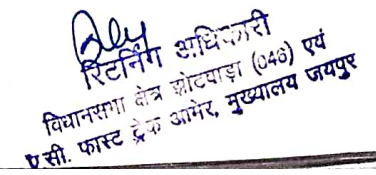 रिटर्निंग अधिकारी
विधानसभा क्षेत्र झोटवाड़ा (046) एवं
ए.सी. फास्ट ट्रेक आमेर, मुख्यालय जयपुर